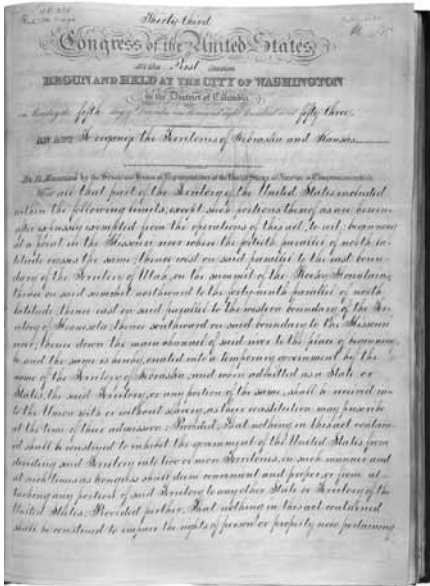 Thirty-third
Congress of the United States;
At the First Session
BEGUN AND HELD AT THE CITY OF WASHINGTON
in the District of Columbia
on Monday the fifth day of December one thousand eight hundred and fifty three.
AN ACT To organize the Territories of Nebraska and Kansas.
Be it Enacted by the Senate and House of Representatives of the United States of America in Congress assembled,
That all that part of the Territory of the United States included
within the following limits, except such portions thereof as are herein-
after expressly exempted from the operations of this act, to wit: beginning
at a point in the Missouri river where the fortieth parallel of north la-
titude crosses the same; thence west on said parallel to the east boun-
dary of the Territory of Utah, on the summit of the Rocky Mountains;
thence on said summit northward to the forty-ninth parallel of north
latitude; thence east on said parallel to the western boundary of the Ter-
ritory of Minnesota; thence southward on said boundary to the Missouri
river; thence down the main channel of said river to the place of beginning,
be, and the same is hereby, created into a temporary government by the
name of the Territory of Nebraska; and when admitted as a State or
States, the said Territory, or any portion of the same, shall be received in-
to the Union with or without slavery, as their constitution may prescribe
at the time of their admission: Provided, That nothing in this act contain-
ed shall be construed to inhibit the government of the United States from
dividing said Territory into two or more Territories, in such manner and
at such times as Congress shall deem convenient and proper, or from at-
taching any portion of said Territory to any other State or Territory of the
United States: Provided further, That nothing in this act contained
shall be construed to impair the rights of person or property now pertaining